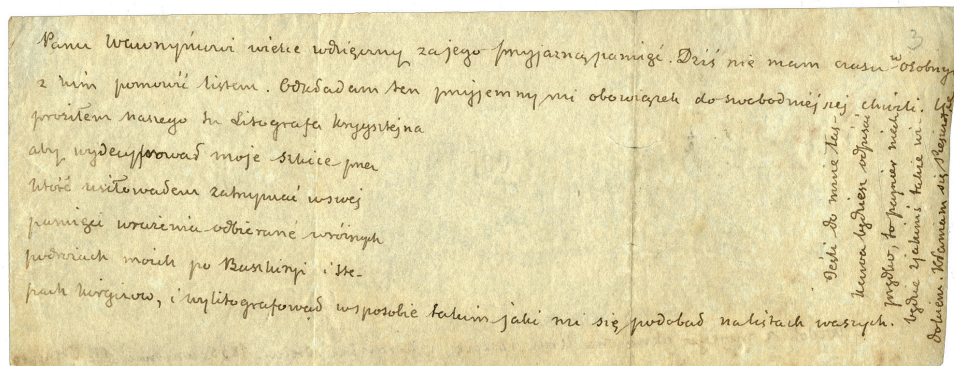 3
Panu Wawrzyńcowi wielce wdzięczny za jego przyjazną pamięć. Dziś nie mam czasu w osobnym
z nim pomówić listem. Odkładam ten przyjemny mi obowiązek do swobodniejszej chwili. U
prosiłem naszego tu Litografa
aby wydecyfrował moje szkice przez
które usiłowałem zatrzymać w swej
pamięci wrażenia odbierane w różnych
podróżach moich po Baszkiryi i ste-
pach Kirgizow, i wylitografował w sposobie takim jaki mi się podobał na listach waszych.
Jeśli do mnie łas-
kawa będziesz odpisać
prędko, to papier niech
będzie z jakimś takie wi-
dokiem. Kłaniam się